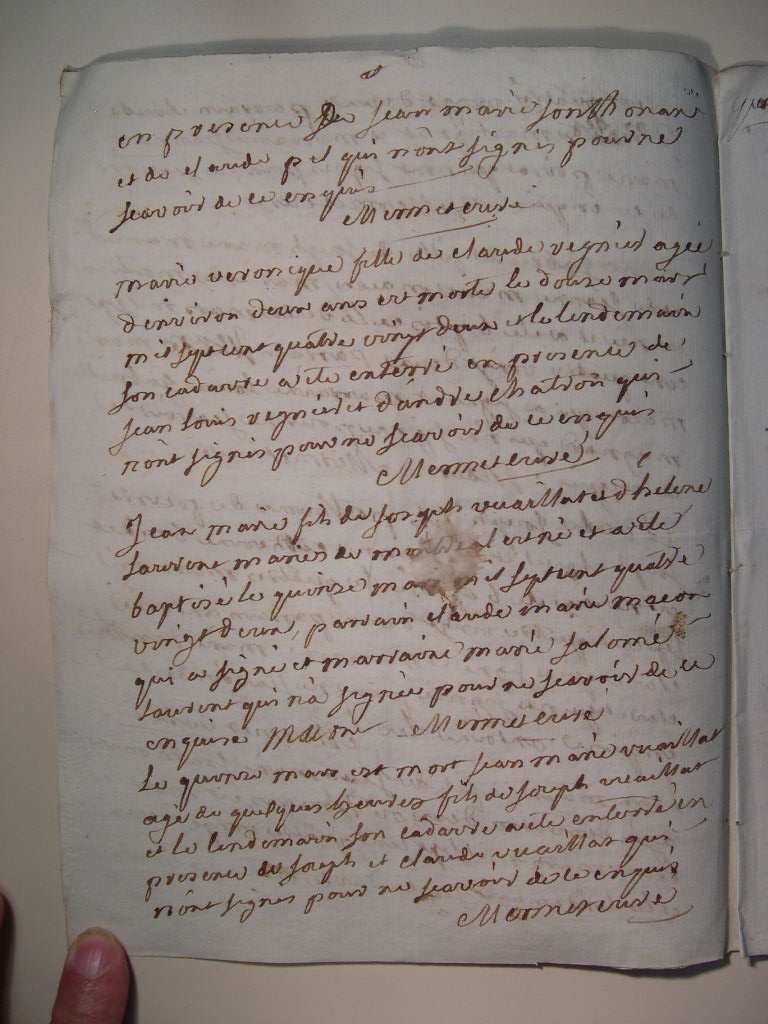 en presence de jean marie Sonthonax
et de claude pel qui n'ônt signés pour ne
scavoir de ce enquis
Mermet curé
marie veronique fille de claude vegnier agée
d'environ deux ans est morte le douze mars
mil septcent quatre vingt deux et le lendemain
son cadavre a ete enterré en presence de
jean louis vegnier et d'andre chatron qui
n'ont signés pour ne scavoir de ce enquis
Mermet curé
Jean marie fils de Joseph vuaillat et d'helene
laurent mariés de est né et a ete
baptisé le quinze mars mil septcent quatre
vingt deux, parrain claude marie macon
qui a signé et marraine marie salomé
laurent qui n'a signée pour ne scavoir de ce
enquise Macon Mermet curé
Le quinze mars est mort jean marie vuaillat
agé de quelques heures fils de joseph vuaillat
et le lendemain son cadavre a ete enterré en
presence de joseph et claude vuaillat qui
n'ont signes pour ne scavoir de ce enquis
Mermet curé